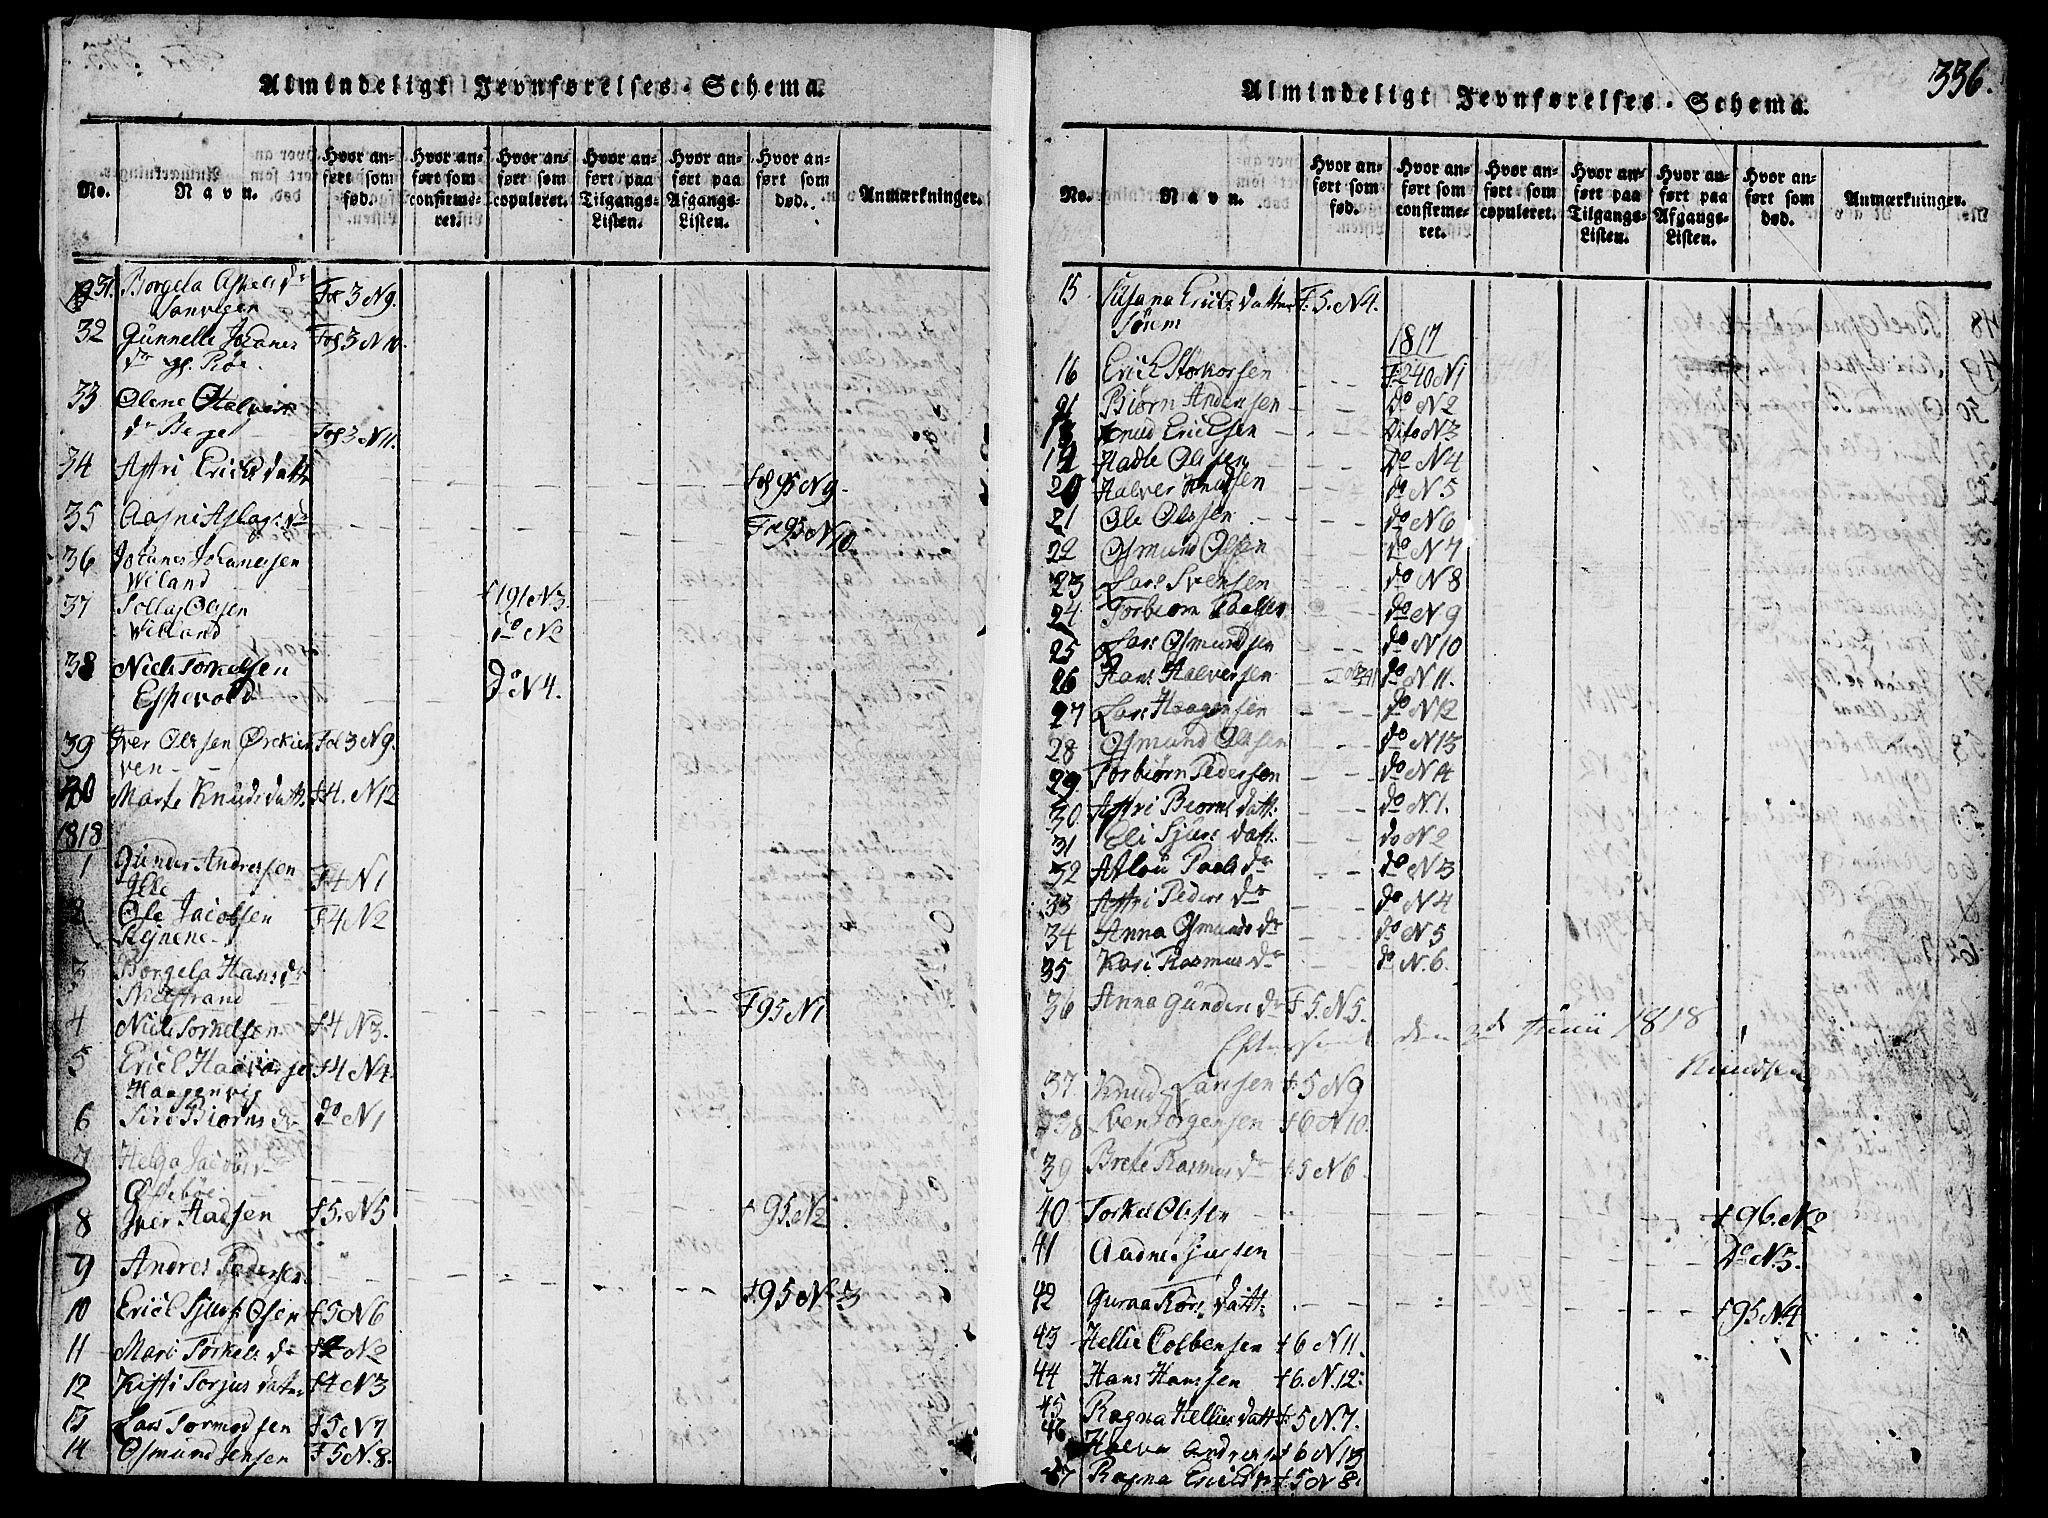 Almindeligt Jevnførelses-Schema.
No.
Navn.
Hvor anført som fød.
Hvor anført som confirmeret.
Hvor anført som copuleret.
Hvor anført paa Tilgangs-Listen.
Hvor anført paa Afgangs-Listen.
Hvor anført som død.
Anmærkninger.
31. Borgela Aslaks Dr
Sanviger Fol 3 N 9.
32 Gunnelle Johanes
Dr Røe. Fol 3 N 10.
33 Olene Halvors
Dr Berge Fol 3 N 11.
34 Astri Erichs datt Fol 95 N 9.
35 Aagni Aslags Dr Fol 95 N 10
36 Johanes Johanesen
Wiland f 191 N 3.
37 Tollag Olsen
Wiland do N 2
38 Niels Torkelsen
Espevold do N 4.
39 Iver Olssen Ørekier Fol 3 N 9.
ven
40 Marte Knuds datt f 4. N 12
1818
1 Gunder Andersen
F 4 N 1
2 Ole Jacobsen
F 4 N 2
3 Borgela Hans dr
Nielstrand F 95 N 1
4 Niels Torkelsen f 4 N 3.
5 Erich f 4 N 4.
6 Siri Biørns dr do N 1
7 Helga Jacobs
Østebøe f 95. N 2
8 Iver f 5. N 5
9 Andres Pedersen f 95 N 3
10 Erich f 5 N 6
11 Mari Torkels dr f 4 N 2
12 Torjus datter f 4 N 3
13 Lars Tormodsen f 5 N 7
14 Osmund Jensen F 5 N. 8.
Almindeligt Jevnførelses-Schema.
336.
No.
Navn.
Hvor anført som fød.
Hvor anført som confirmeret.
Hvor anført som copuleret.
Hvor anført paa Tilgangs-Listen.
Hvor anført paa Afgangs-Listen.
Hvor anført som død.
Anmærkninger.
15 Susana Erichs datter F. 5. N 4.
1817
16 Erich Storkorsen F 240 N 1
Biørn Andersen do N 2
Knud Ericksen Dito N 3
19 Hadle Olssen Do N 4
20 Halver Knudsen do N. 5
21 Ole Olssen do N 6
22 Osmund Olsen do N 7
23 Lars Svensen do N 8
24 Torbiørn do N 9
25 Lars Osmundsen do N 10
26 Hans Halversen do N 11.
27 Lars Haagensen do N 12
28 Osmund Olssen do N 13
29 Torbiørn Pedersen do N 14
30 Astri Biorns datt. do N 1.
31 Eli Sjurs datt. do N 2
32 Atlou Paals dr do N 3
33 Astri Peders dr do N 4
34 Anna Osmunds dr do N 5
35 Kari Rasmus dr do N. 6.
36 Anna Gunders dr F 5. N 5.
Efterseet den 2d Junii 1818
Knudsen
37 Knud Larsen f 5 N 9
38 Sven Torgersen f 6 N 10.
39 Brete Rasmus dr f 5 N 6.
40 Torkel Olssen f 96. N 2
41 Aadne do N. 3.
42 Guraa Tørs datt. f 95 N 4
43 Hellie Colbensen f 6 N 11.
44 Hans Hanssen f 6. N. 12.
45 Ragna Hellies datt f 5 N. 7.
46 Halvor Andersen f 6 N 13
47 Ragna Erichs dr f 5 N 8.